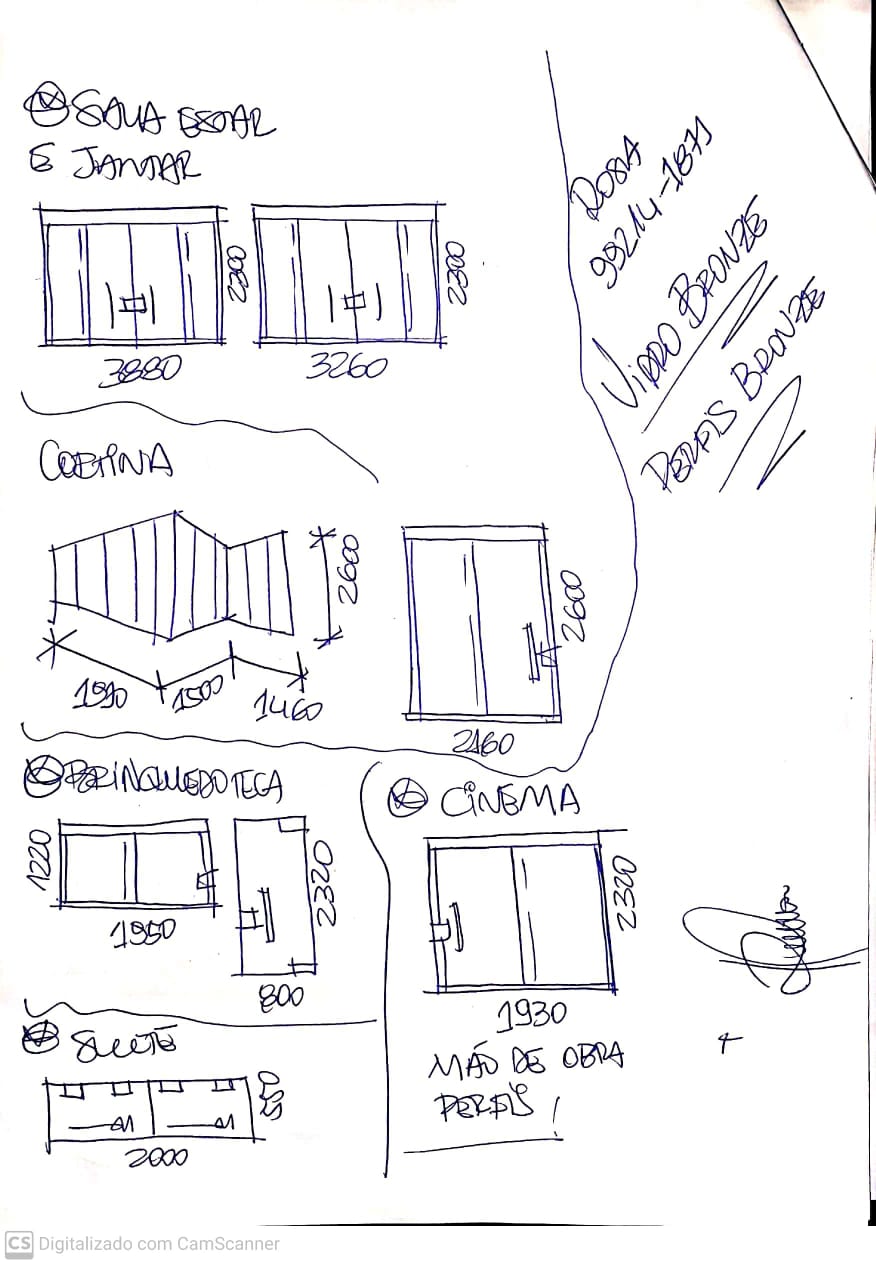 SALA ESTAR
E JANTAR
2300
2300
3880
3260
ROSA
99214-1871
VIDRO BRONZE
PERFIS BRONZE
CORTINA
2600
2600
1500
1460
2460
BRINQUEDOTECA
1220
2320
1950
800
CINEMA
2320
1930
MÃO DE OBRA
PERFIS!
SUITE
2000
CS Digitalizado com CamScanner